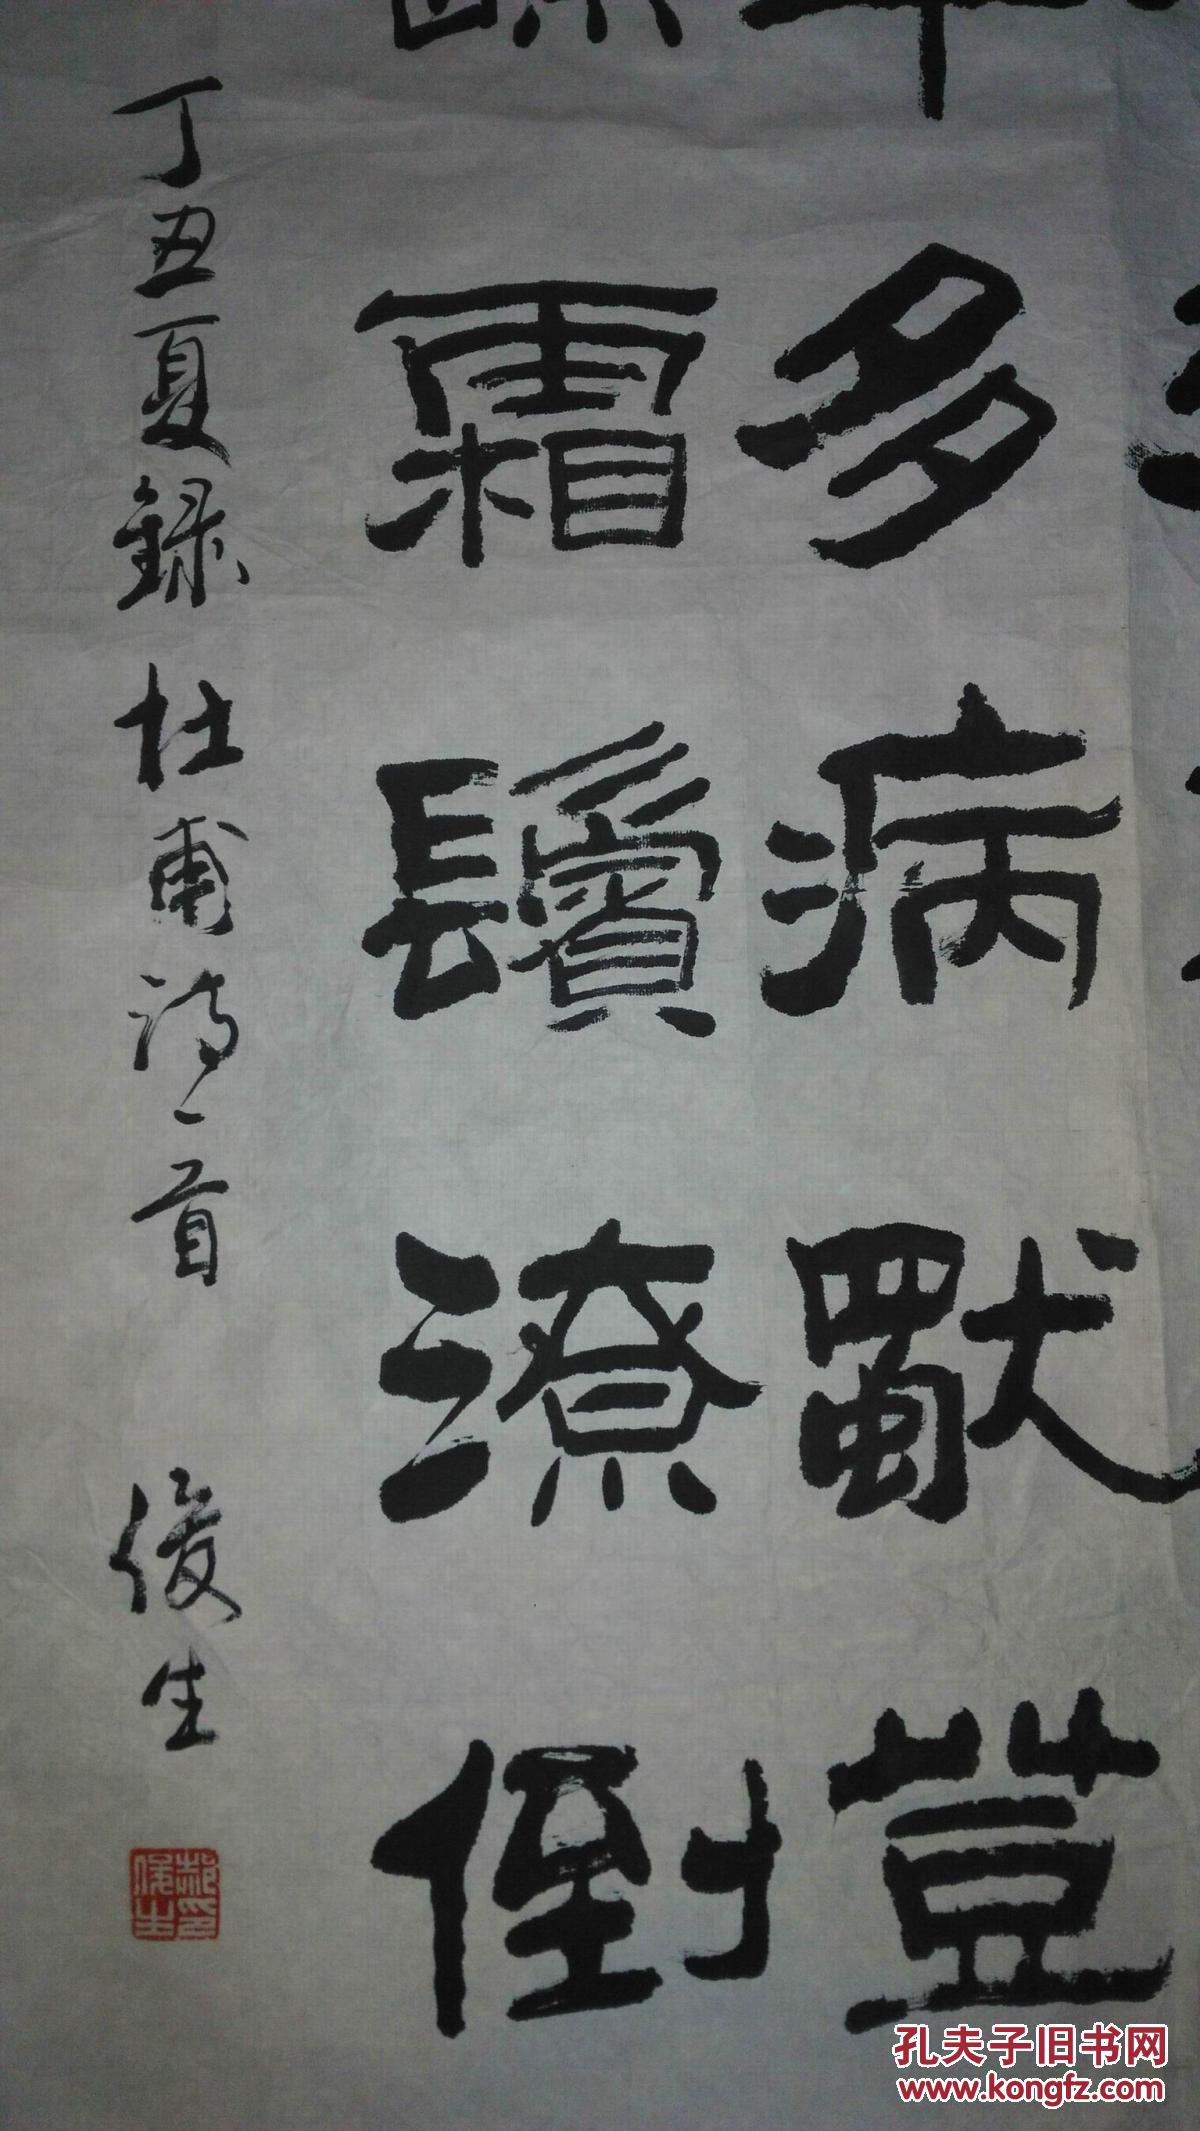 多病獨登
霜鬢潦倒
丁丑夏録杜甫詩一首 俊生
郝印俊生
孔夫子旧书网
www.kongfz.com